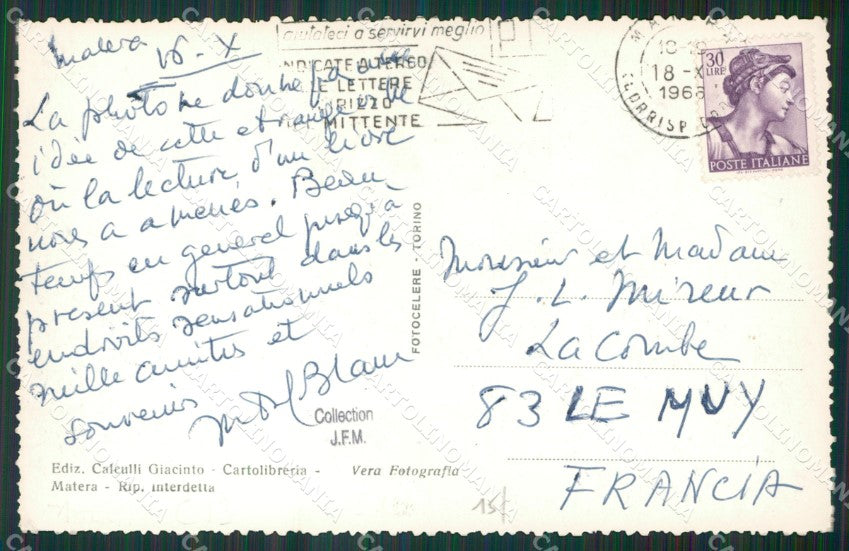 Matera 16-X
La photo ne donne pas une
idée de cette étrange ville
où la lecture d'un livre
nous a amenés. Beau
temps en general jusqu'à
present surtout dans les
endroits sensationnels
mille amitiés et
souvenirs
aiutateci a servirvi meglio
INDICATE A TERGO
LE LETTERE
INDIRIZZO
MITTENTE
MA
18-
18-X
196
CORRISP
30
LIRE
POSTE ITALIANE
FOTOCELERE - TORINO
Monsieur et Madame
J. L. Mireur
La Combe
83 LE MUY
FRANCIA
Collection
J.F.M.
Ediz. Calculli Giacinto - Cartolibreria - Vera Fotografia
Matera - Rip. interdetta
15
CARTOLINOMANIA